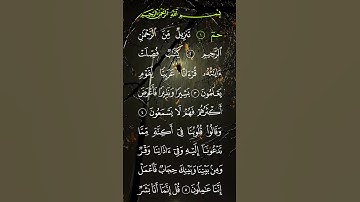 بِسْمِ اللَّهِ الرَّحْمَٰنِ الرَّحِيمِ
حمٓ ١ تَنزِيلٌ مِّنَ ٱلرَّحْمَٰنِ
ٱلرَّحِيمِ ٢ كِتَٰبٌ فُصِّلَتْ
ءَايَٰتُهُۥ قُرْءَانًا عَرَبِيًّا لِّقَوْمٍ
يَعْلَمُونَ ٣ بَشِيرًا وَنَذِيرًا فَأَعْرَضَ
أَكْثَرُهُمْ فَهُمْ لَا يَسْمَعُونَ ٤
وَقَالُوا۟ قُلُوبُنَا فِىٓ أَكِنَّةٍ مِّمَّا
تَدْعُونَآ إِلَيْهِ وَفِىٓ ءَاذَانِنَا وَقْرٌ
وَمِنۢ بَيْنِنَا وَبَيْنِكَ حِجَابٌ فَٱعْمَلْ
إِنَّنَا عَٰمِلُونَ ٥ قُلْ إِنَّمَآ أَنَا۠ بَشَرٌ